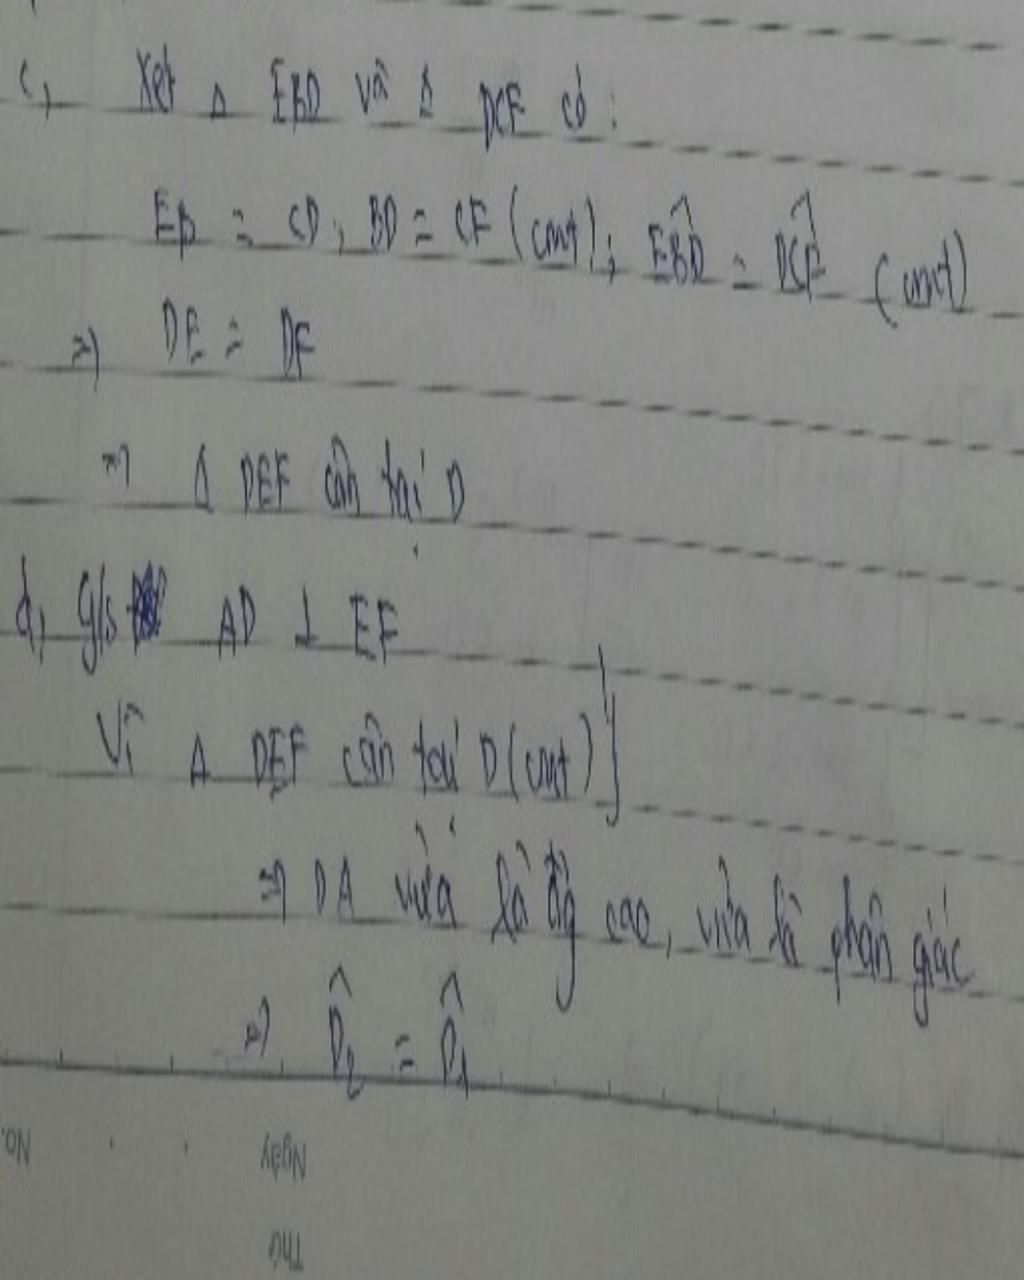 c, Xét Δ EBD và Δ DCF có:
EB = CD, BD = CF (cmt); EB̂D = DĈF (cmt)
=) DE = DF
=) Δ DEF cân tại D
d, g/s AD ⊥ EF
Vì Δ DEF cân tại D (cmt) }
=) DA vừa là đg cao, vừa là phân giác
=) D̂₂ = D̂₁
No.
Ngày
Thứ